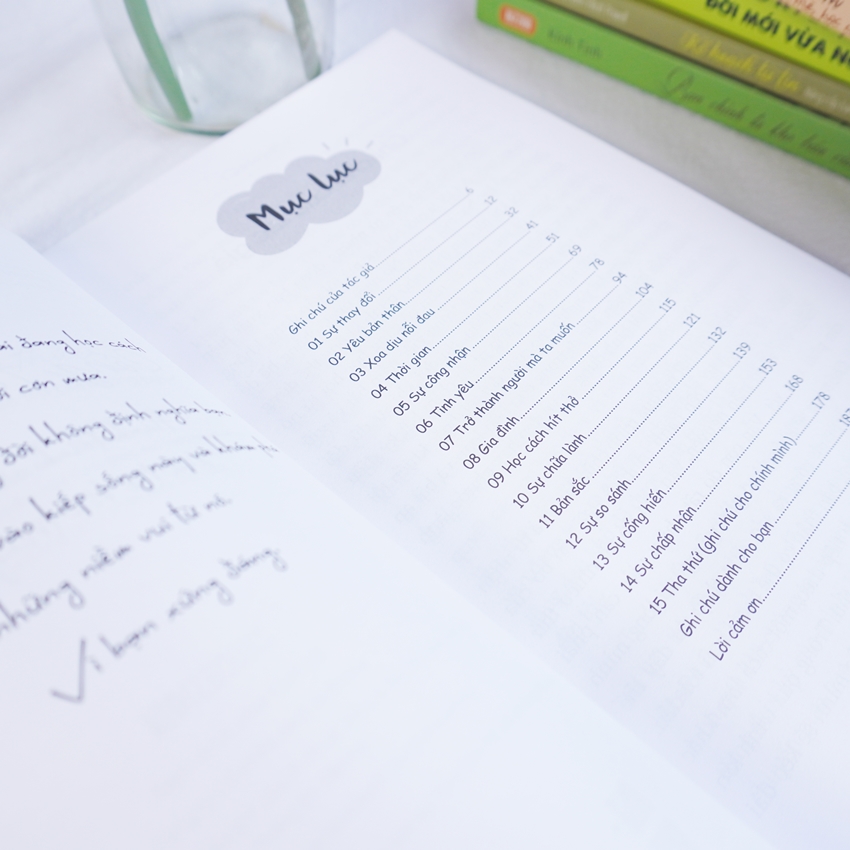 ĐỜI MỚI VỪA
Bạn chính là
đang học cách
cơn mưa.
đời không định nghĩa bạn
kiếp sống này và khám
những niềm vui từ nó
Vì bạn xứng đáng
Mục lục
Ghi chú của tác giả 6
01 Sự thay đổi 12
02 Yêu bản thân 32
03 Xoa dịu nỗi đau 41
04 Thời gian 51
05 Sự công nhận 69
06 Tình yêu 78
07 Trở thành người mà ta muốn 94
08 Gia đình 104
09 Học cách hít thở 115
10 Sự chữa lành 121
11 Bản sắc 132
12 Sự so sánh 139
13 Sự cống hiến 153
14 Sự chấp nhận 168
15 Tha thứ (ghi chú cho chính mình) 178
Ghi chú dành cho bạn 187
Lời cảm ơn